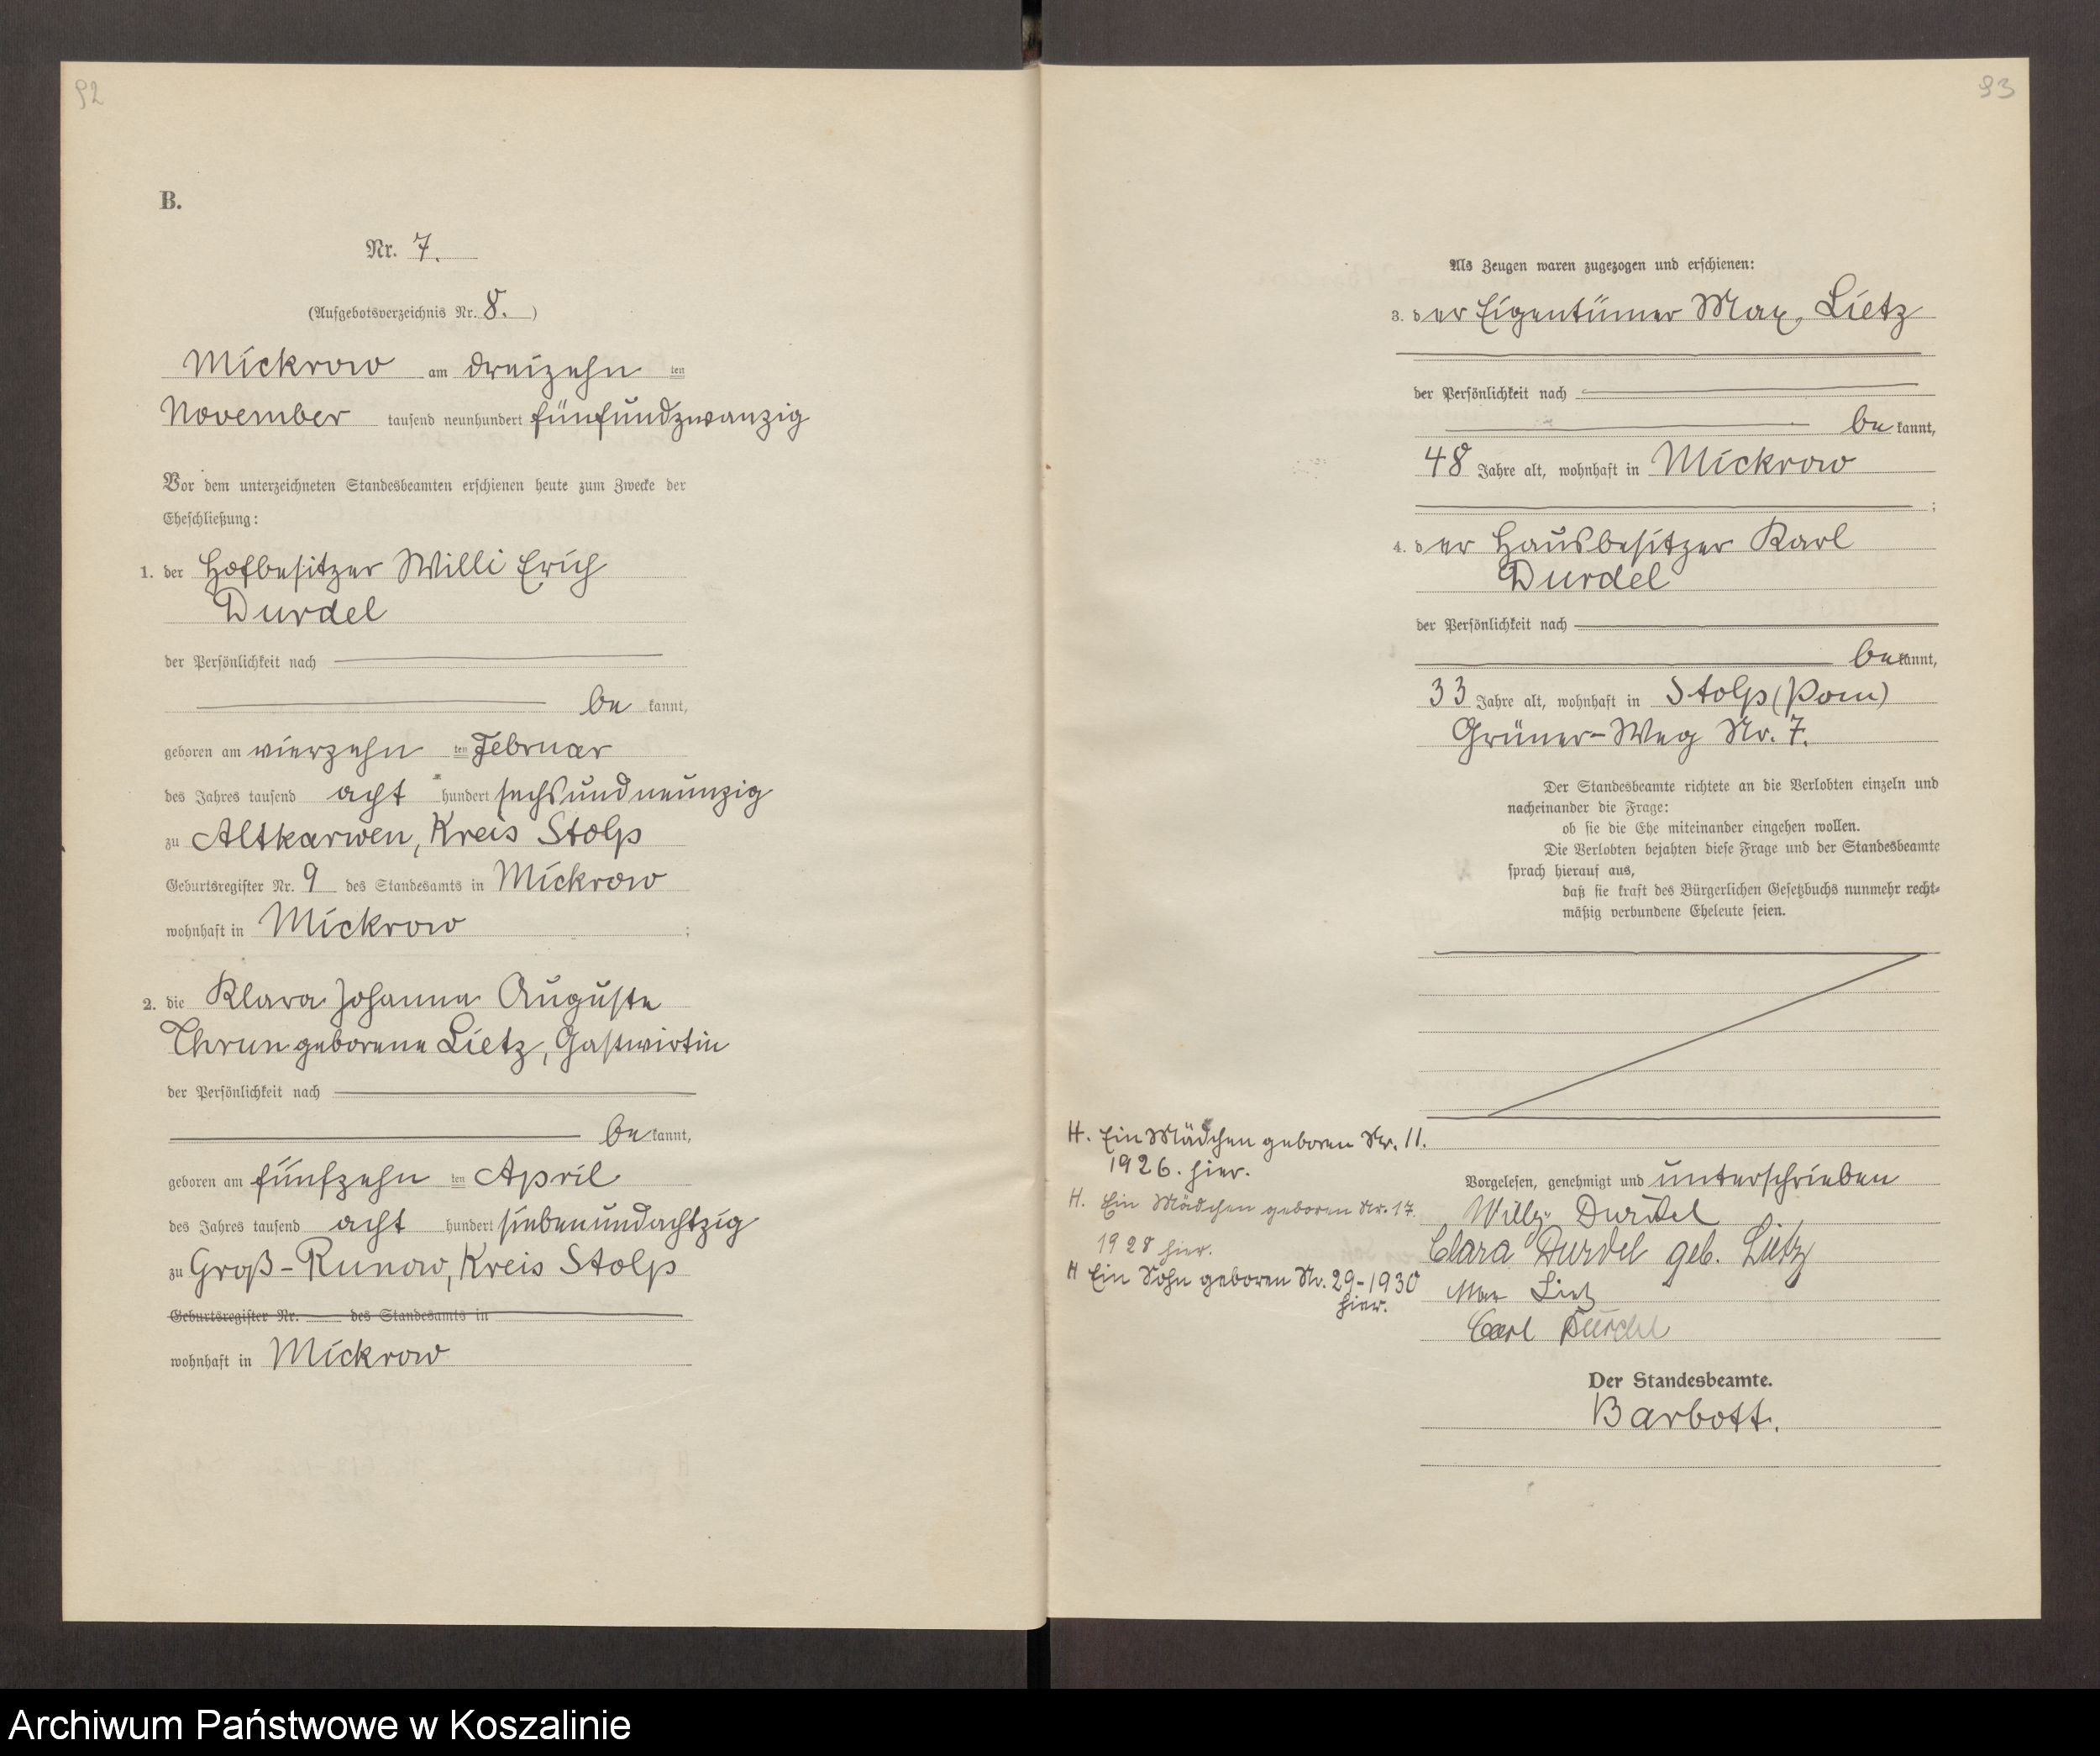 92
B.
Nr. 7.
(Aufgebotsverzeichnis Nr. 8.)
Mickrow am dreizehn ten
November tausend neunhundert fünfundzwanzig
Vor dem unterzeichneten Standesbeamten erschienen heute zum Zwecke der
Eheschließung:
1. der Hofbesitzer Willi Erich
Durdel
der Persönlichkeit nach
be kannt,
geboren am vierzehn ten Februar
des Jahres tausend acht hundert sechsundneunzig
zu Altkarwen, Kreis Stolp
Geburtsregister Nr. 9 des Standesamts in Mickrow
wohnhaft in Mickrow ;
2. die Klara Johanna Auguste
Thrun geborene Lietz, Gastwirtin
der Persönlichkeit nach
be kannt,
geboren am fünfzehn ten April
des Jahres tausend acht hundert siebenundachtzig
zu Groß-Runow, Kreis Stolp
Geburtsregister Nr. des Standesamts in
wohnhaft in Mickrow
93
Als Zeugen waren zugezogen und erschienen:
3. der Eigentümer Max Lietz
der Persönlichkeit nach
be kannt,
48 Jahre alt, wohnhaft in Mickrow
;
4. der Hausbesitzer Karl
Durdel
der Persönlichkeit nach
be kannt,
33 Jahre alt, wohnhaft in Stolp (Pom)
Grüner-Weg Nr. 7.
Der Standesbeamte richtete an die Verlobten einzeln und
nacheinander die Frage:
ob sie die Ehe miteinander eingehen wollen.
Die Verlobten bejahten diese Frage und der Standesbeamte
sprach hierauf aus,
daß sie kraft des Bürgerlichen Gesetzbuchs nunmehr recht-
mäßig verbundene Eheleute seien.
H. Ein Mädchen geboren Nr. 11.
1926. hier.
H. Ein Mädchen geboren Nr. 17.
1928 hier.
H Ein Sohn geboren Nr. 29-1930
hier.
Vorgelesen, genehmigt und unterschrieben
Willy Durdel
Clara Durdel geb. Lietz
Max Lietz
Carl Durdel
Der Standesbeamte.
Barbott.
Archiwum Państwowe w Koszalinie